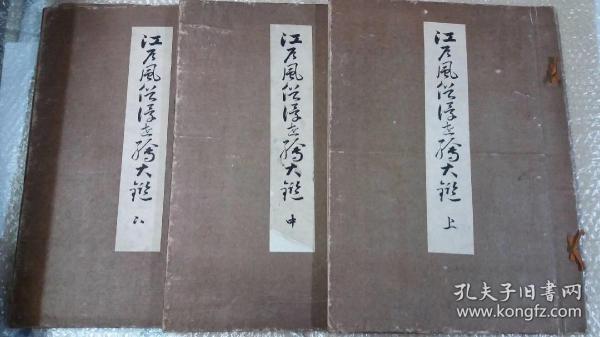 江戸風俗浮世繪大鑑 上
江戸風俗浮世繪大鑑 中
江戸風俗浮世繪大鑑 下
孔夫子旧书网
www.kongfz.com